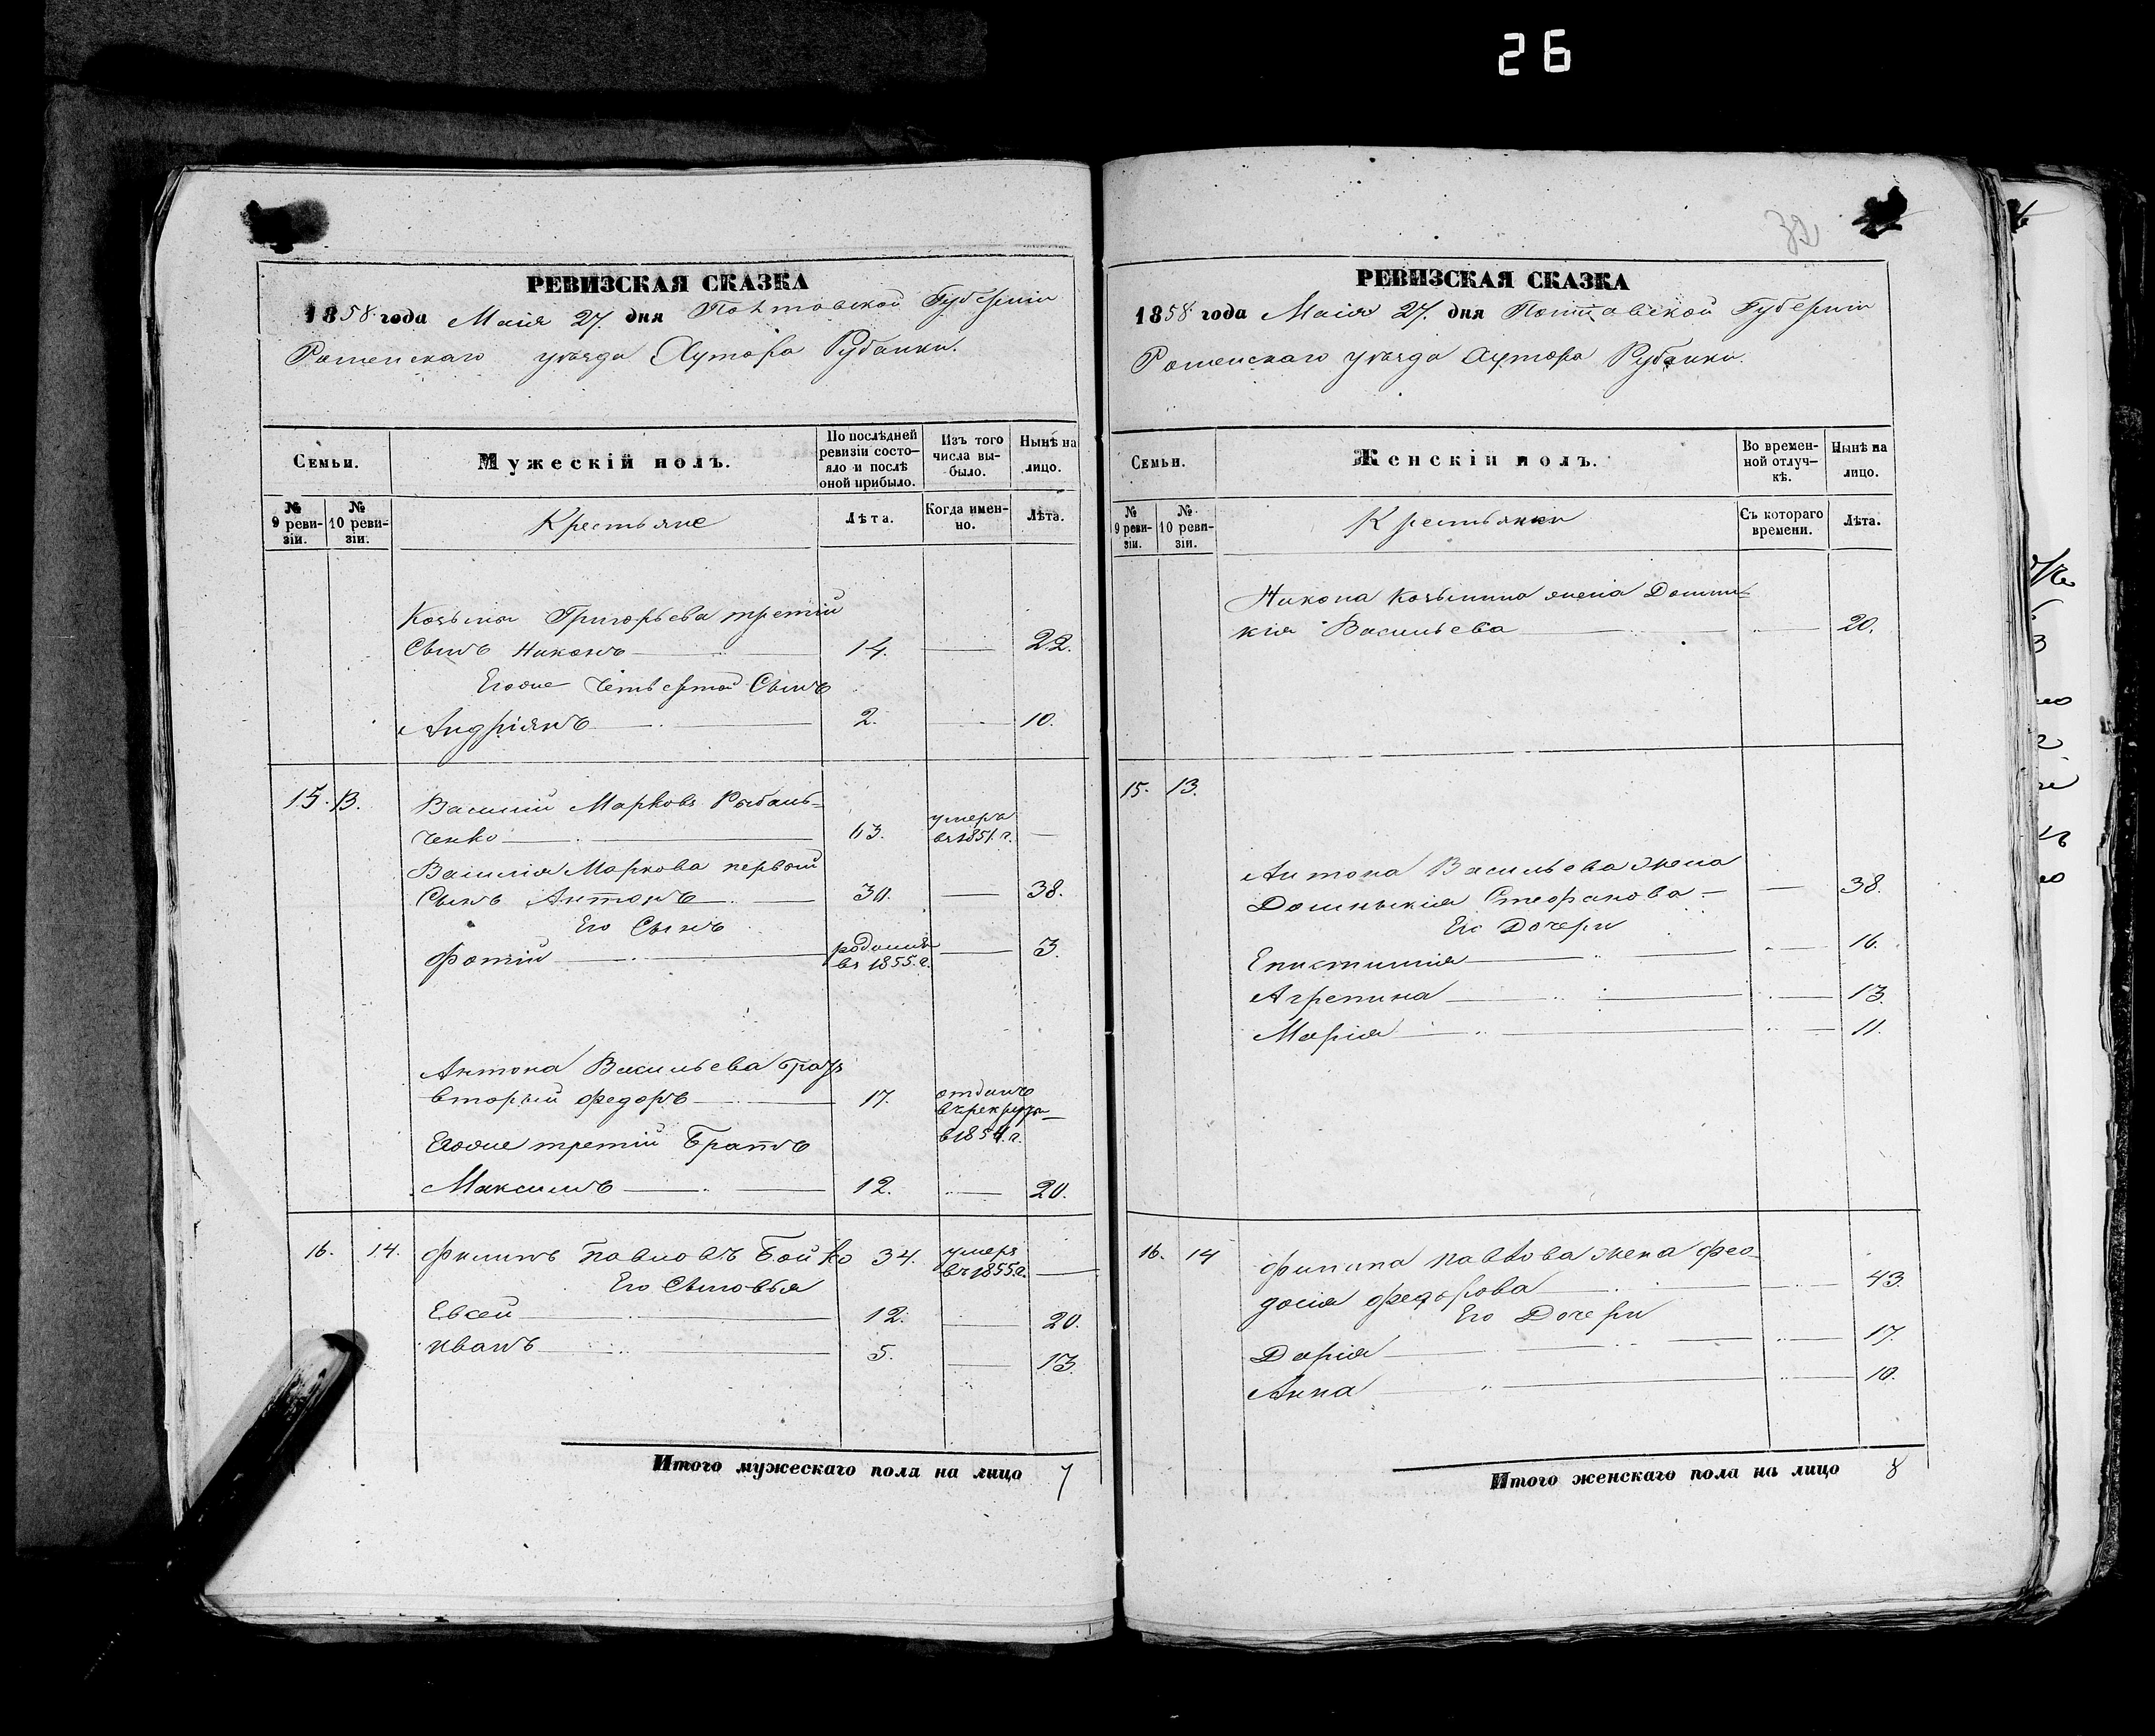 26
РЕВИЗСКАЯ СКАЗКА
1858 года Маія 27. дня Полтавской Губерніи
Роменскаго уѣзда Хутора Рубанки.
Семьи.
Мужескій полъ.
По послѣдней ревизіи состо-яло и послѣ оной прибыло.
Изъ того числа вы-было.
Нынѣ на лицо.
№ 9 реви-зіи.
№ 10 реви-зіи.
Крестьяне
Лѣта.
Когда имен-но.
Лѣта.
Козьмы Григорьева третій
Сынъ Никонъ 14. 22.
Егоже Четвертой Сынъ
Андріянъ 2. 10.
15. 13. Василій Марковъ Рыбаль-
ченко 63. умеръ въ 1851. г.
Василія Маркова первый
Сынъ Антонъ 30. 38.
Его Сынъ
Фотій родился въ 1855. г. 3.
Антона Васильева братъ
вторый Федоръ 17. отданъ въ рекруты в 1854. г.
Егоже третій Братъ
Максимъ 12. 20.
16. 14. Филипъ Павловъ Бойко 34. умеръ въ 1855 г.
Его Сыновья
Евсей 12. 20.
Иванъ 5. 13.
Итого мужескаго пола на лицо 7
32
РЕВИЗСКАЯ СКАЗКА
1858 года Маія 27. дня Полтавской Губерніи
Роменскаго уѣзда Хутора Рубанки.
Семьи.
Женскій полъ.
Во времен-ной отлуч-кѣ.
Нынѣ на лицо.
№ 9 реви-зіи.
№ 10 реви-зіи.
Крестьянки
Съ котораго времени.
Лѣта.
Никона Козьмина жена Домни-
кія Васильева 20.
15. 13.
Антона Васильева жена
Домникія Стефанова 38.
Его Дочери
Епистимія 16.
Агрепина 13.
Марія 11.
16. 14 Филипа Павлова жена Фео-
досія Федорова 43.
Его Дочери
Дарія 17.
Анна 10.
Итого женскаго пола на лицо 8